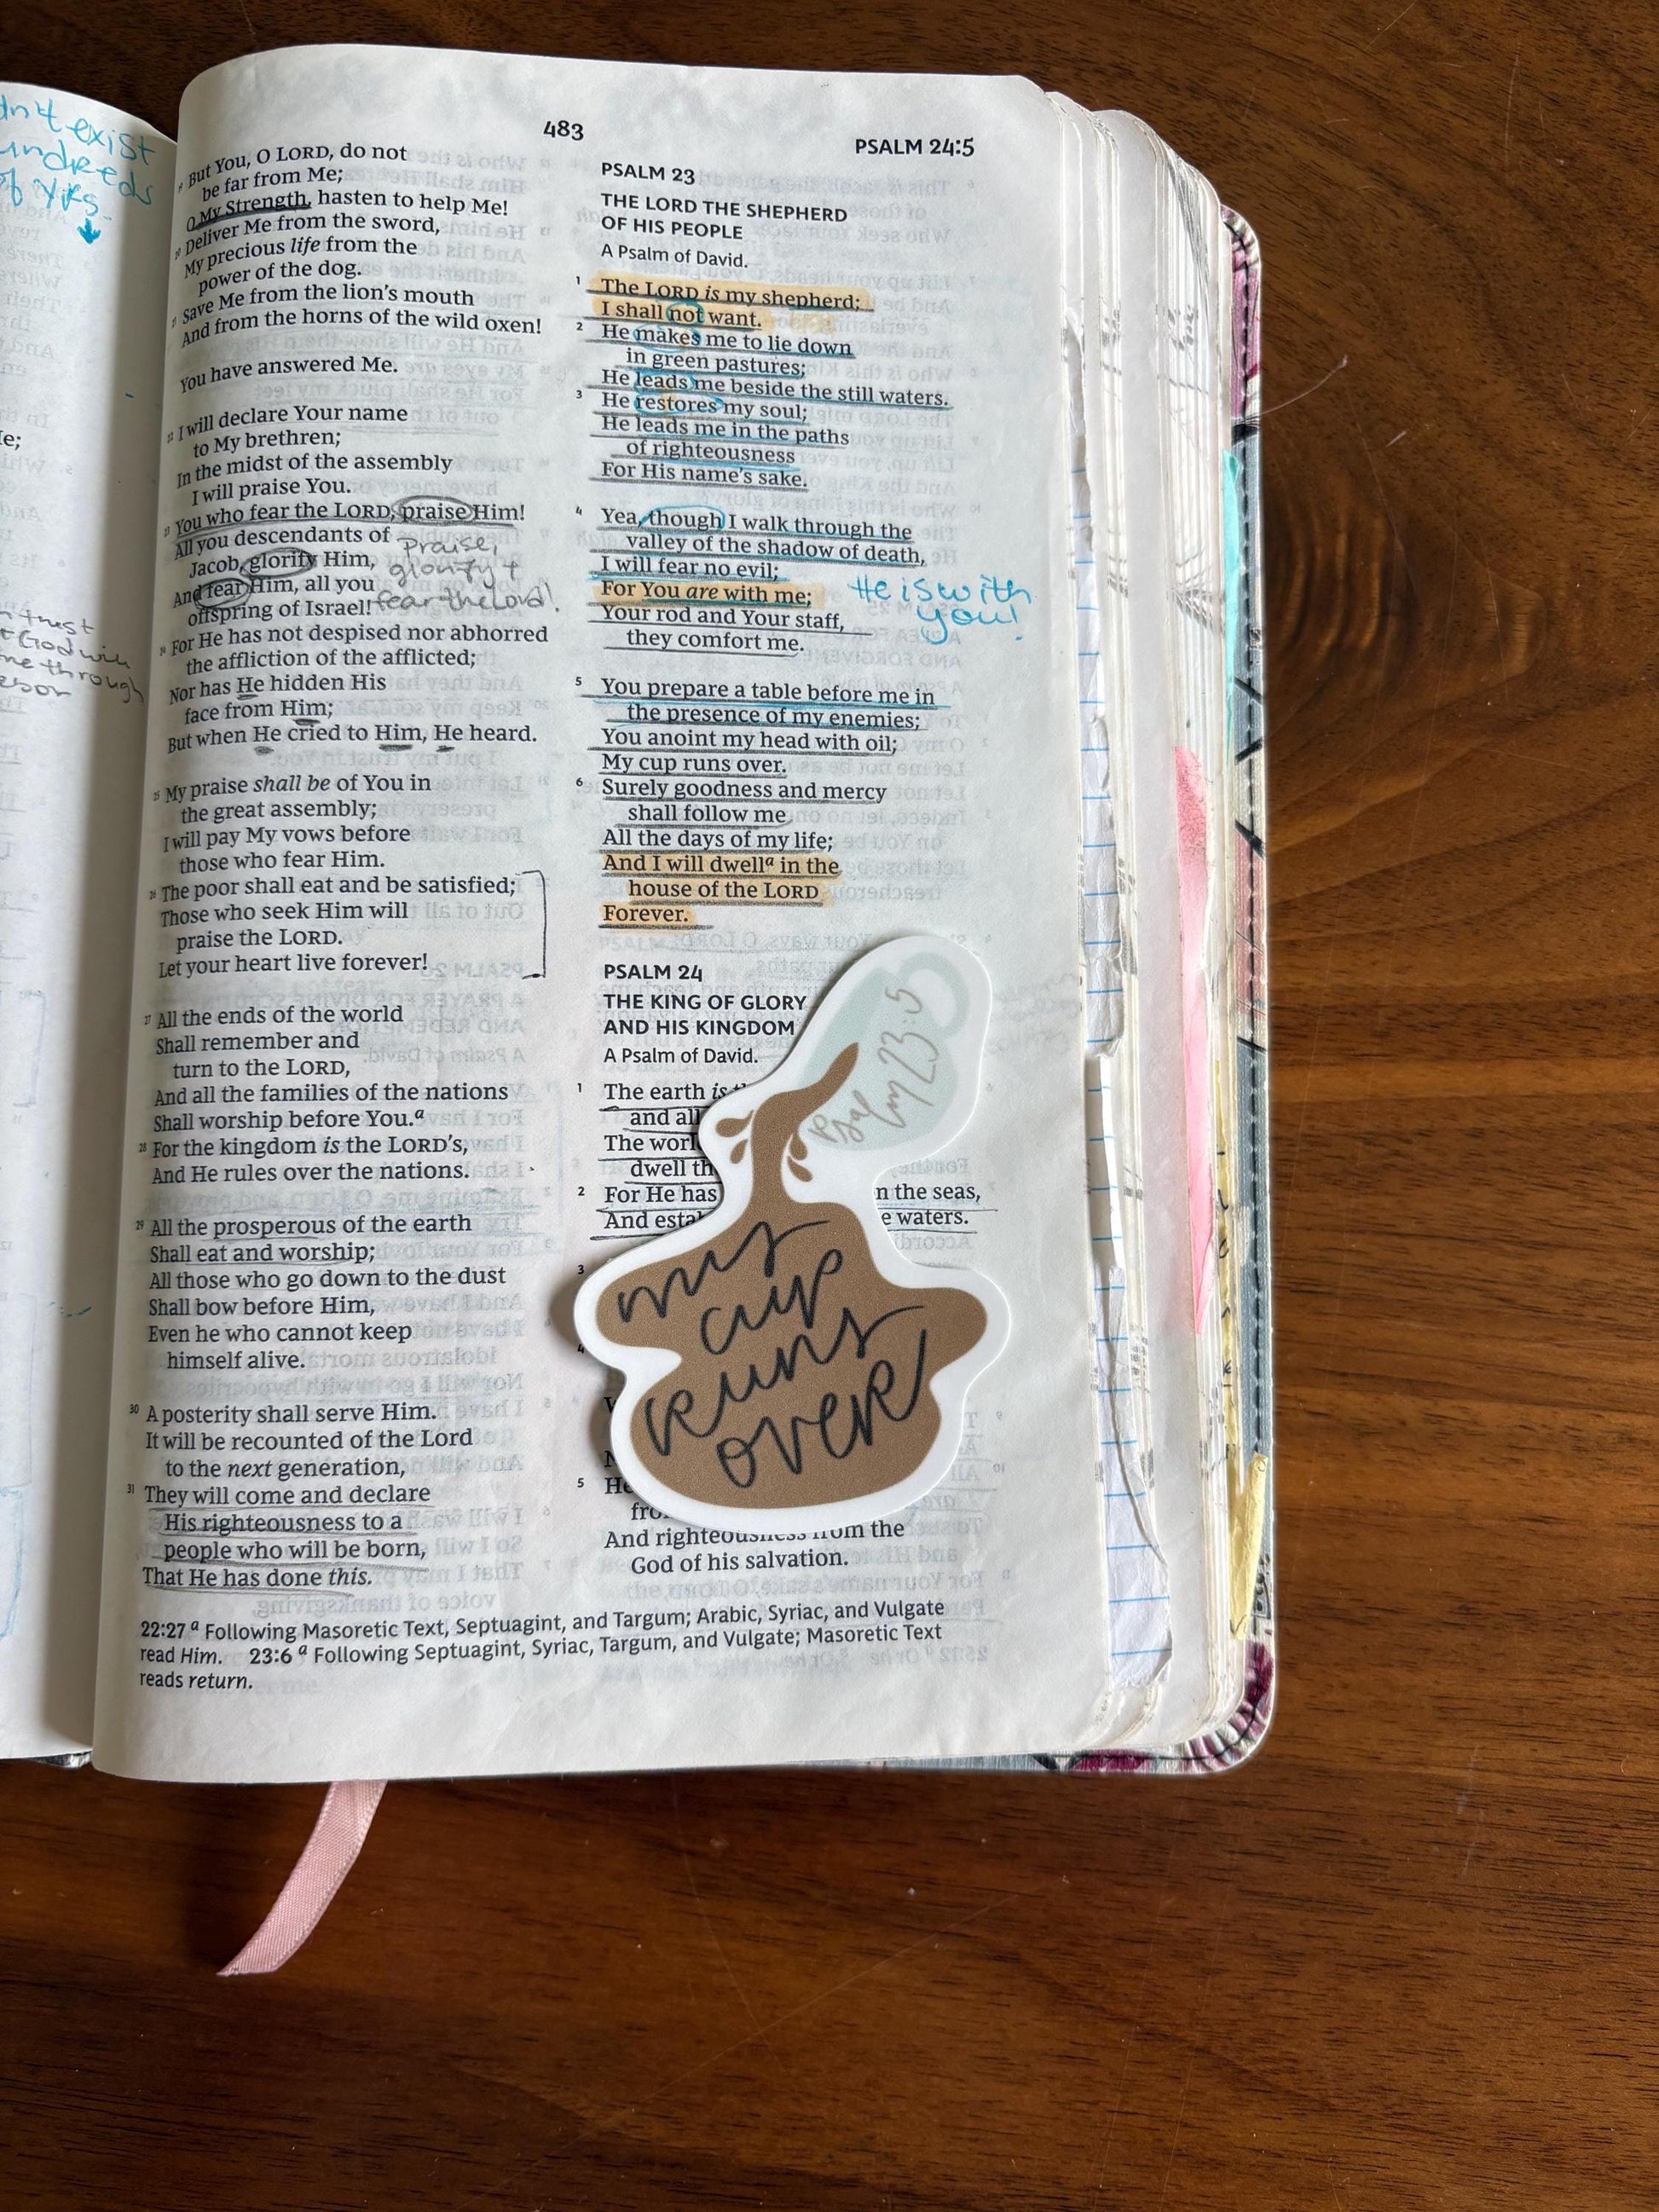 exist
of yrs.
God will
me through
483
PSALM 24:5
19 But You, O LORD, do not
be far from Me;
O My Strength, hasten to help Me!
20 Deliver Me from the sword,
My precious life from the
power of the dog.
21 Save Me from the lion's mouth
And from the horns of the wild oxen!
You have answered Me.
22 I will declare Your name
to My brethren;
In the midst of the assembly
I will praise You.
23 You who fear the LORD, praise Him!
All you descendants of
Jacob, glorify Him,
And fear Him, all you
offspring of Israel!
praise,
glorify +
fear the Lord!
24 For He has not despised nor abhorred
the affliction of the afflicted;
Nor has He hidden His
face from Him;
But when He cried to Him, He heard.
25 My praise shall be of You in
the great assembly;
I will pay My vows before
those who fear Him.
26 The poor shall eat and be satisfied;
Those who seek Him will
praise the LORD.
Let your heart live forever!
27 All the ends of the world
Shall remember and
turn to the LORD,
And all the families of the nations
Shall worship before You.a
28 For the kingdom is the LORD's,
And He rules over the nations.
29 All the prosperous of the earth
Shall eat and worship;
All those who go down to the dust
Shall bow before Him,
Even he who cannot keep
himself alive.
30 A posterity shall serve Him.
It will be recounted of the Lord
to the next generation,
31 They will come and declare
His righteousness to a
people who will be born,
That He has done this.
PSALM 23
THE LORD THE SHEPHERD
OF HIS PEOPLE
A Psalm of David.
1 The LORD is my shepherd;
I shall not want.
2 He makes me to lie down
in green pastures;
He leads me beside the still waters.
3 He restores my soul;
He leads me in the paths
of righteousness
For His name's sake.
4 Yea, though I walk through the
valley of the shadow of death,
I will fear no evil;
For You are with me;
Your rod and Your staff,
they comfort me.
He is with
you!
5 You prepare a table before me in
the presence of my enemies;
You anoint my head with oil;
My cup runs over.
6 Surely goodness and mercy
shall follow me
All the days of my life;
And I will dwella in the
house of the LORD
Forever.
PSALM 24
THE KING OF GLORY
AND HIS KINGDOM
A Psalm of David.
1 The earth is
and all
The
dwell
2 For He has n the seas,
And e waters.
3
4
5
And righteousness from the
God of his salvation.
Psal
m 23:5
my
cup
runs
over
22:27 a Following Masoretic Text, Septuagint, and Targum; Arabic, Syriac, and Vulgate
read Him. 23:6 a Following Septuagint, Syriac, Targum, and Vulgate; Masoretic Text
reads return.